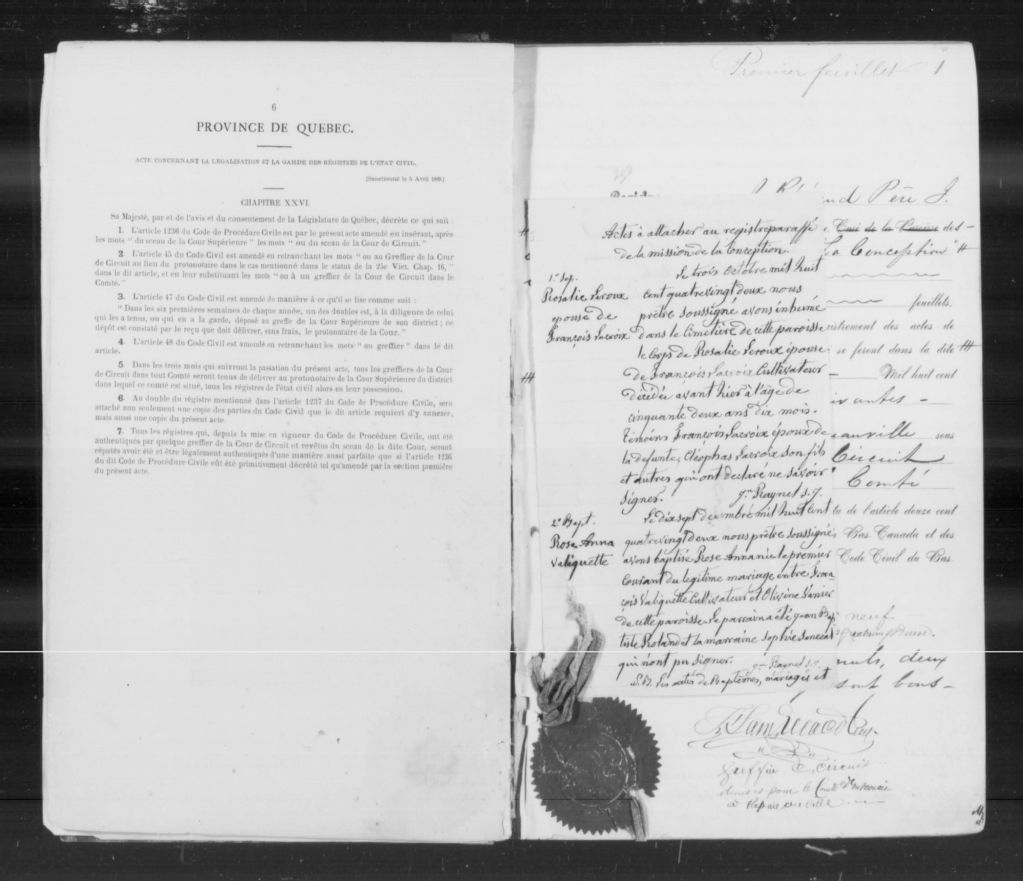 6
PROVINCE DE QUEBEC.
ACTE CONCERNANT LA LÉGALISATION ET LA GARDE DES RÉGISTRES DE L'ÉTAT CIVIL.
[Sanctionné le 5 Avril 1869.]
CHAPITRE XXVI.
SA Majesté, par et de l'avis et du consentement de la Législature de Québec, décrète ce qui suit :
1. L'article 1236 du Code de Procédure Civile est par le présent acte amendé en insérant, après
les mots " du sceau de la Cour Supérieure " les mots " ou du sceau de la Cour de Circuit."
2. L'article 45 du Code Civil est amendé en retranchant les mots " ou au Greffier de la Cour
de Circuit au lieu du protonotaire dans le cas mentionné dans le statut de la 25e Vict. Chap. 16, "
dans le dit article, et en leur substituant les mots " ou à un greffier de la Cour de Circuit dans le
Comté."
3. L'article 47 du Code Civil est amendé de manière à ce qu'il se lise comme suit :
" Dans les six premières semaines de chaque année, un des doubles est, à la diligence de celui
qui les a tenus, ou qui en a la garde, déposé au greffe de la Cour Supérieure de son district ; ce
dépôt est constaté par le reçu que doit délivrer, sans frais, le protonotaire de la Cour. "
4. L'article 48 du Code Civil est amendé en retranchant les mots " ou greffier " dans le dit
article.
5. Dans les trois mois qui suivront la passation du présent acte, tous les greffiers de la Cour
de Circuit dans tout Comté seront tenus de délivrer au protonotaire de la Cour Supérieure du district
dans lequel ce comté est situé, tous les régistres de l'état civil alors en leur possession.
6. Au double du régistre mentionné dans l'article 1237 du Code de Procédure Civile, sera
attaché non seulement une copie des parties du Code Civil que le dit article requiert d'y annexer,
mais aussi une copie du présent acte.
7. Tous les régistres qui, depuis la mise en vigueur du Code de Procédure Civile, ont été
authentiqués par quelque greffier de la Cour de Circuit et revêtus du sceau de la dite Cour, seront
réputés avoir été et être légalement authentiqués d'une manière aussi parfaite que si l'article 1236
du dit Code de Procédure Civile eût été primitivement décrété tel qu'amendé par la section première
du présent acte.
Premier feuillet 1
nd Père J.
Actes à attacher au registre paraffé
de la mission de la Conception.
1e Sep.
Rosalie Leroux
épouse de
François Lacroix
Le trois octobre mil huit
cent quatrevingt deux nous
prêtre soussigné avons inhumé
dans le cimetière de cette paroisse
le corps de Rosalie Leroux épouse
de François Lacroix Cultivateur
décédée avant hier à l'âge de
cinquante deux ans dix mois.
Témoins François Lacroix époux de
la défunte, Cléophas Lacroix son fils
et autres qui ont déclaré ne savoir
signer. Raynel s.j.
2e Bapt.
Rose Anna
Valiquette
Le dix sept décembre mil huit cent
quatrevingt deux nous prêtre soussigné
avons baptisé Rose Anna née le premier
courant du légitime mariage entre Fran-
çois Valiquette Cultivateur et Olivine
de cette paroisse. Le parrain a été Jean Bap-
tiste Roland et la marraine Sophie Senécal
qui n'ont pu signer. Raynel s.j.
N.B. Les actes de Baptêmes, mariages et
Curé de la Paroisse des-
La Conception #
feuillets.
istrement des actes de
se feront dans la dite ###
Mil huit cent
sous
Circuit
Comté
tu de l'article douze cent
Bas Canada et des
Code Civil du Bas
neuf
nuls, deux
sont bons-
Greffier C. Circuit